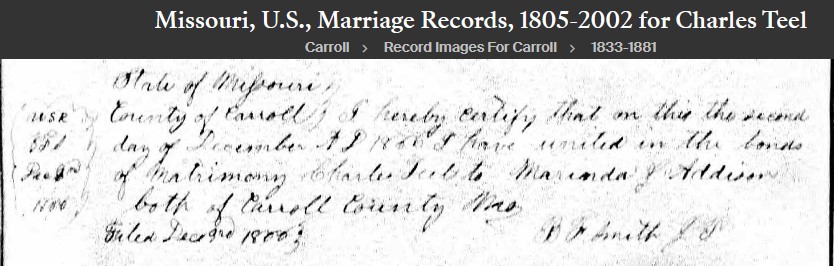 Missouri, U.S., Marriage Records, 1805-2002 for Charles Teel
Carroll > Record Images For Carroll > 1833-1881
State of Missouri
County of Carroll } I hereby certify that on this the second
day of December A D I have united in the bonds
of Matrimony Charles to Marinda J Addison
both of Carroll County Mo
Filed Dec 3rd
B F Smith J P